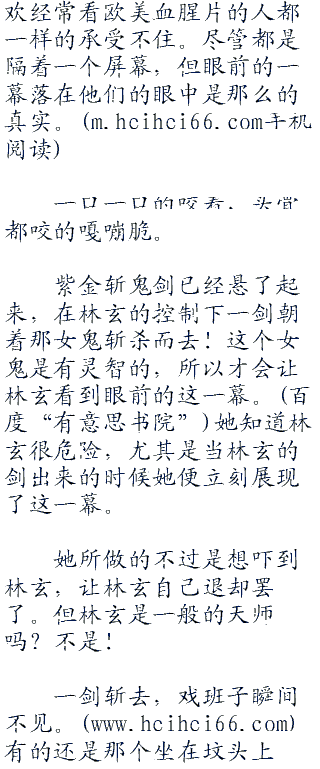 欢经常看欧美血腥片的人都
一样的承受不住。尽管都是
隔着一个屏幕，但眼前的一
幕落在他们的眼中是那么的
真实。(m.hcihci66.com手机
阅读)
一口一口的咬着，头骨
都咬的嘎嘣脆。
紫金斩鬼剑已经悬了起
来，在林玄的控制下一剑朝
着那女鬼斩杀而去！这个女
鬼是有灵智的，所以才会让
林玄看到眼前的这一幕。(百
度“有意思书院”)她知道林
玄很危险，尤其是当林玄的
剑出来的时候她便立刻展现
了这一幕。
她所做的不过是想吓到
林玄，让林玄自己退却罢
了。但林玄是一般的天师
吗？不是！
一剑斩去，戏班子瞬间
不见。(www.hcihci66.com)
有的还是那个坐在坟头上